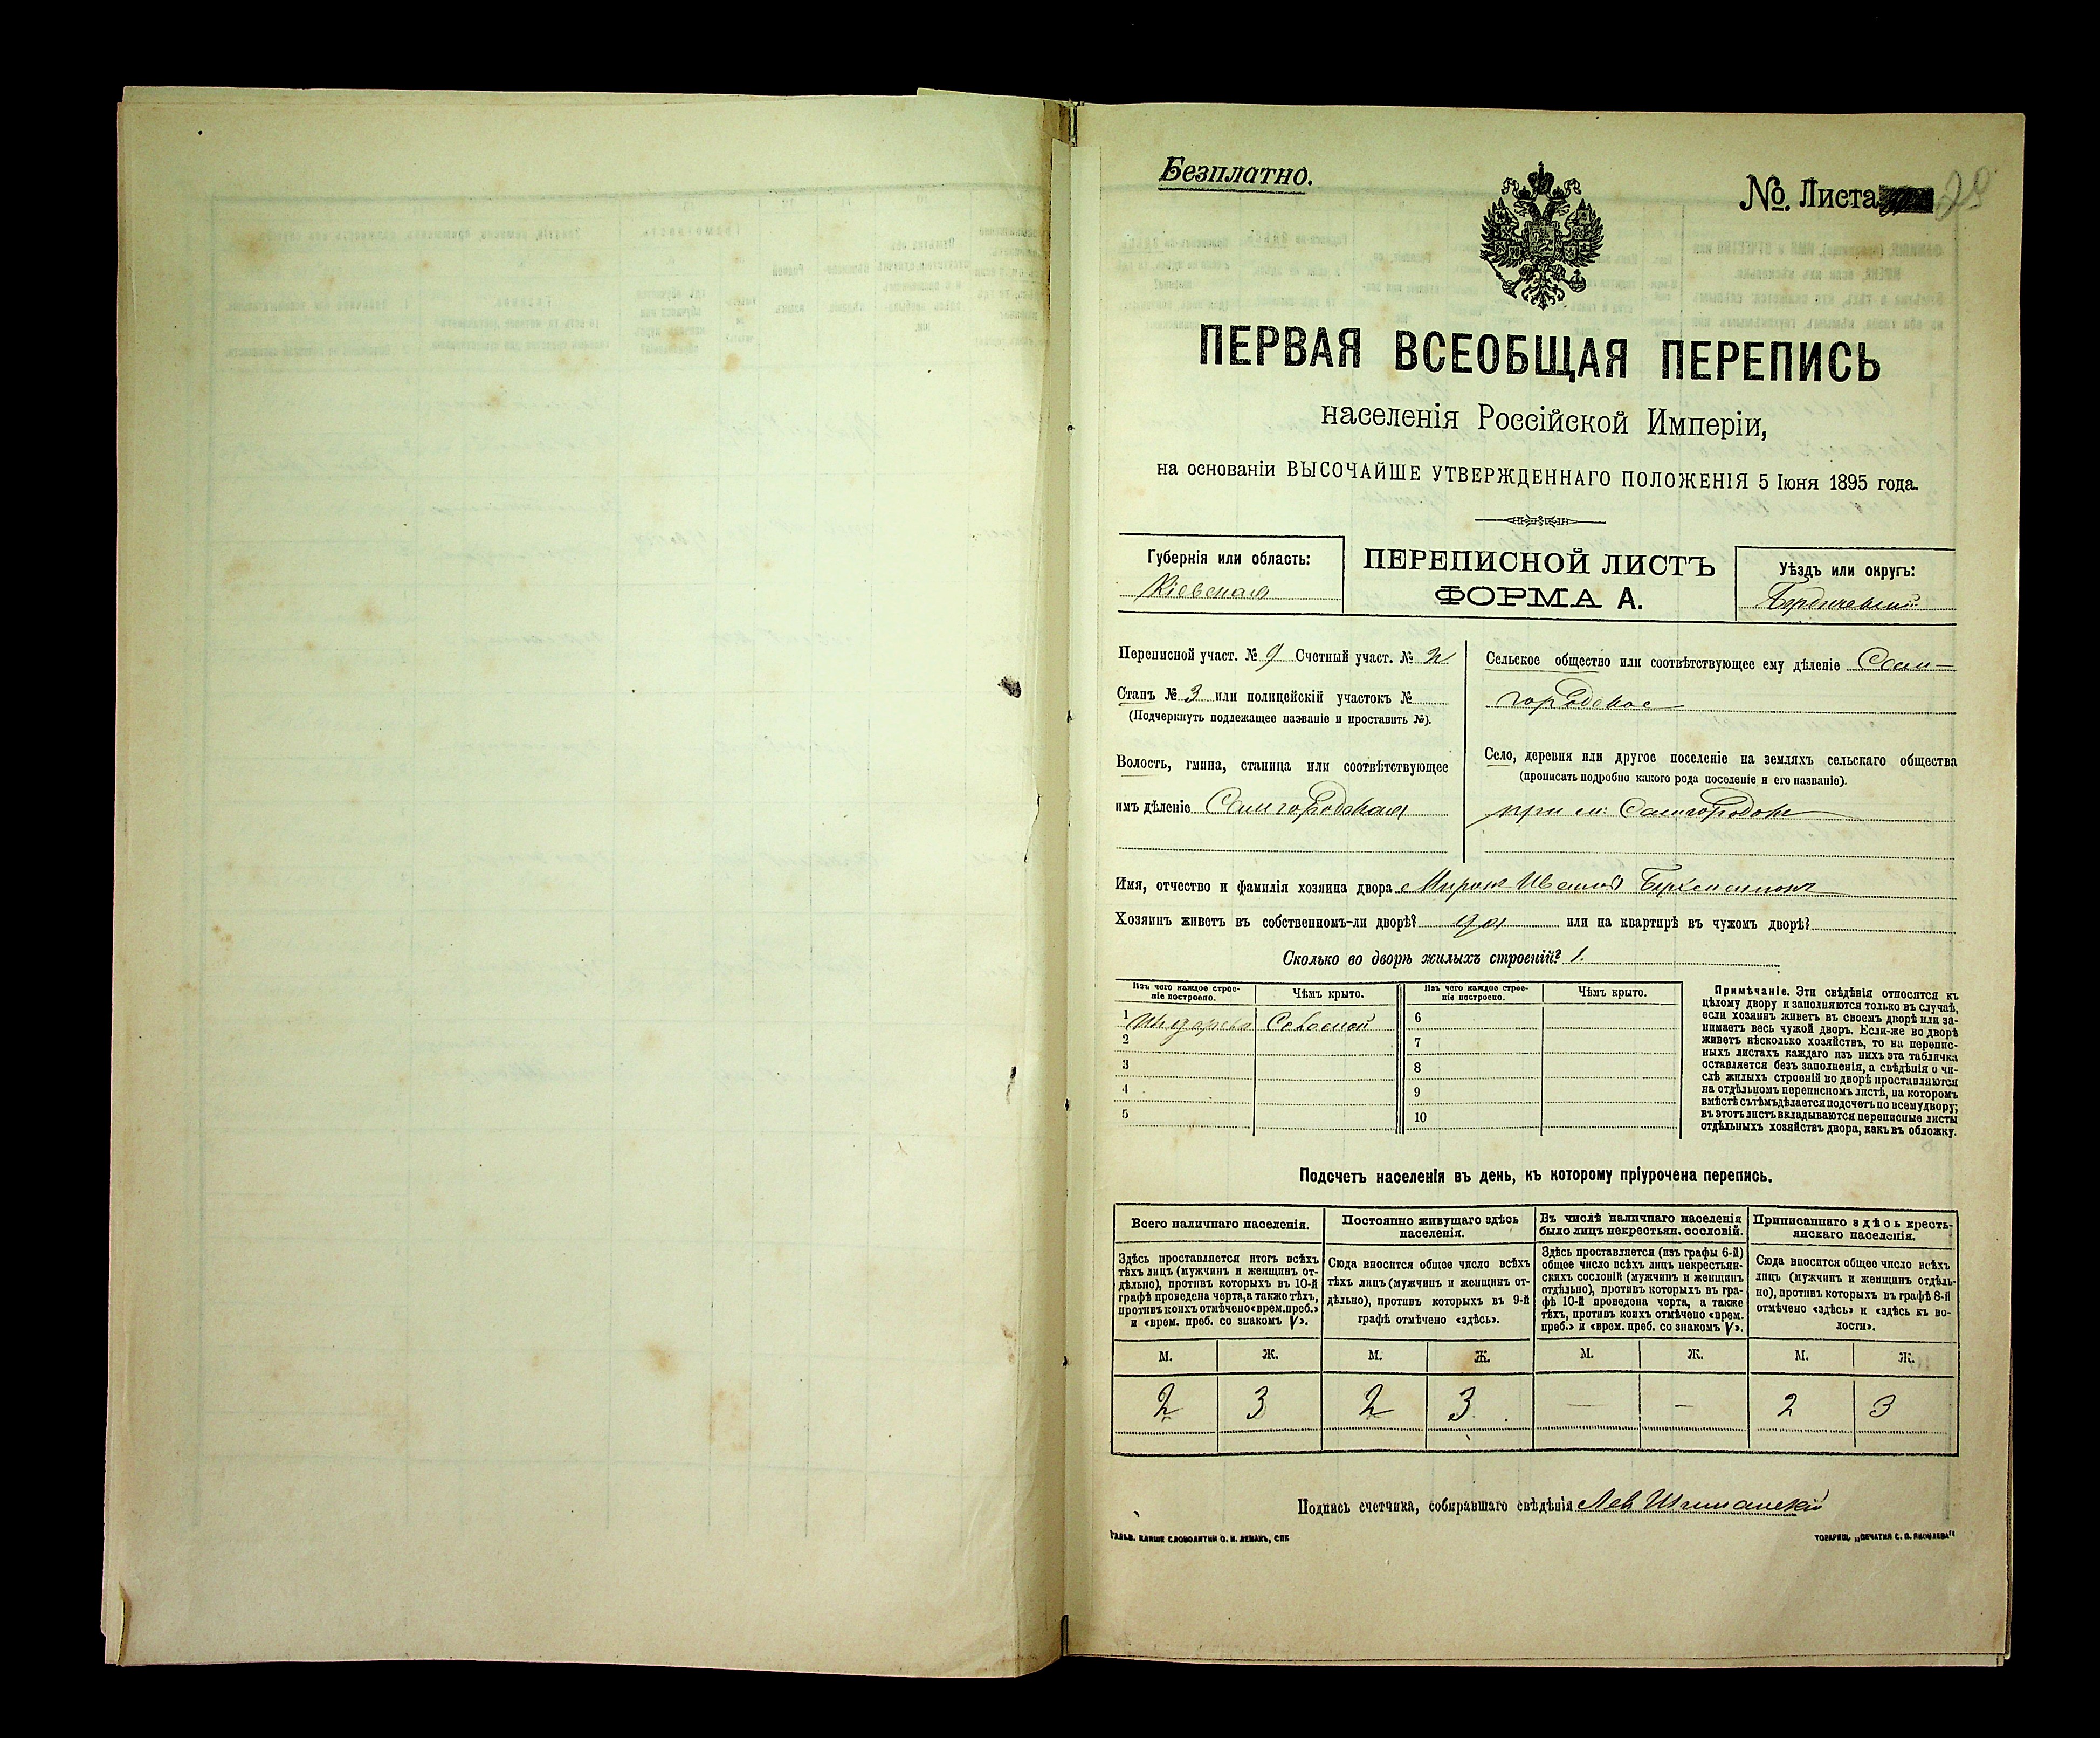 Безплатно.
№. Листа 29
ПЕРВАЯ ВСЕОБЩАЯ ПЕРЕПИСЬ
населенія Россійской Имперіи,
на основаніи ВЫСОЧАЙШЕ УТВЕРЖДЕННАГО ПОЛОЖЕНІЯ 5 Іюня 1895 года.
Губернія или область:
Кіевская
ПЕРЕПИСНОЙ ЛИСТЪ
ФОРМА А.
Уѣздъ или округъ:
Бердичевскій
Переписной участ. № 9 Счетный участ. № 2
Станъ № 3 или полицейскій участокъ №
(Подчеркнуть подлежащее названіе и проставить №).
Волость, гмина, станица или соотвѣтствующее
имъ дѣленіе Самгородская
Сельское общество или соотвѣтствующее ему дѣленіе Сам-
городское
Село, деревня или другое поселеніе на земляхъ сельскаго общества
(прописать подробно какого рода поселеніе и его названіе).
при м. Самгородокъ
Имя, отчество и фамилія хозяина двора Миронъ Ивановъ
Хозяинъ живетъ въ собственномъ-ли дворѣ? да или на квартирѣ въ чужомъ дворѣ?
Сколько во дворѣ жилыхъ строеній? 1.
Изъ чего каждое строе-
ніе построено.
Чѣмъ крыто.
Изъ чего каждое строе-
ніе построено.
Чѣмъ крыто.
1 Соломой
2
3
4
5
6
7
8
9
10
Примѣчаніе. Эти свѣдѣнія относятся къ
цѣлому двору и заполняются только въ случаѣ,
если хозяинъ живетъ въ своемъ дворѣ или за-
нимаетъ весь чужой дворъ. Если-же во дворѣ
живетъ нѣсколько хозяйствъ, то на перепис-
ныхъ листахъ каждаго изъ нихъ эта табличка
оставляется безъ заполненія, а свѣдѣнія о чи-
слѣ жилыхъ строеній во дворѣ проставляются
на отдѣльномъ переписномъ листѣ, на которомъ
вмѣстѣ съ тѣмъ дѣлается подсчетъ по всему двору;
въ этотъ листъ вкладываются переписные листы
отдѣльныхъ хозяйствъ двора, какъ въ обложку.
Подсчетъ населенія въ день, къ которому пріурочена перепись.
Всего наличнаго населенія.
Здѣсь проставляется итогъ всѣхъ
тѣхъ лицъ (мужчинъ и женщинъ от-
дѣльно), противъ которыхъ въ 10-й
графѣ проведена черта, а также тѣхъ,
противъ коихъ отмѣчено «врем. преб.»
и «врем. преб. со знакомъ V».
Постоянно живущаго здѣсь
населенія.
Сюда вносится общее число всѣхъ
тѣхъ лицъ (мужчинъ и женщинъ от-
дѣльно), противъ которыхъ въ 9-й
графѣ отмѣчено «здѣсь».
Въ числѣ наличнаго населенія
было лицъ некрестьян. сословій.
Здѣсь проставляется (изъ графы 6-й)
общее число всѣхъ лицъ некрестьян-
скихъ сословій (мужчинъ и женщинъ
отдѣльно), противъ которыхъ въ гра-
фѣ 10-й проведена черта, а также
тѣхъ, противъ коихъ отмѣчено «врем.
преб.» и «врем. преб. со знакомъ V».
Приписаннаго здѣсь кресть-
янскаго населенія.
Сюда вносится общее число всѣхъ
лицъ (мужчинъ и женщинъ отдѣль-
но), противъ которыхъ въ графѣ 8-й
отмѣчено «здѣсь» и «здѣсь къ во-
лости».
М. Ж. М. Ж. М. Ж. М. Ж.
2 3 2 3 — — 2 3
Подпись счетчика, собиравшаго свѣдѣнія Лев
ГАЛЬВ. КЛИШЕ СЛОВОЛИТНИ О. И. ЛЕМАНЪ, СПБ
ТОВАРИЩ. „ПЕЧАТНЯ С. П. ЯКОВЛЕВА"